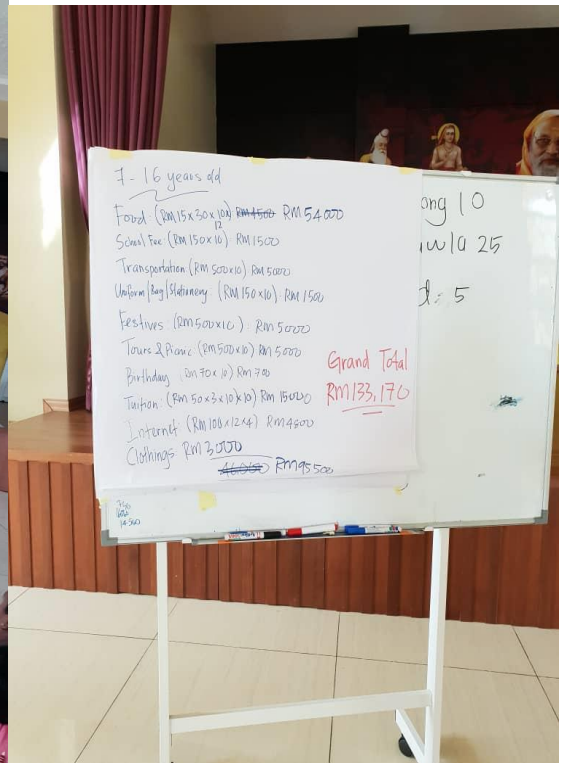 7 - 16 years old
Food: (RM15x30x10x) RM4500 RM54000
12
School Fee: (RM150x10) RM1500
Transportation (RM500x10) RM5000
Uniform/Bag/Stationery: (RM150x10): RM1500
Festives: (RM500x10): RM5000
Tours & Picnic: (RM500x10) RM5000
Birthday: (RM70x10) RM700
Tuition: (RM50x3x10x10) RM15000
Internet: (RM100x12x4) RM4800
Clothings: RM3000
46,000 RM95500
Grand Total
RM133,170
ong 10
wla 25
d: 5